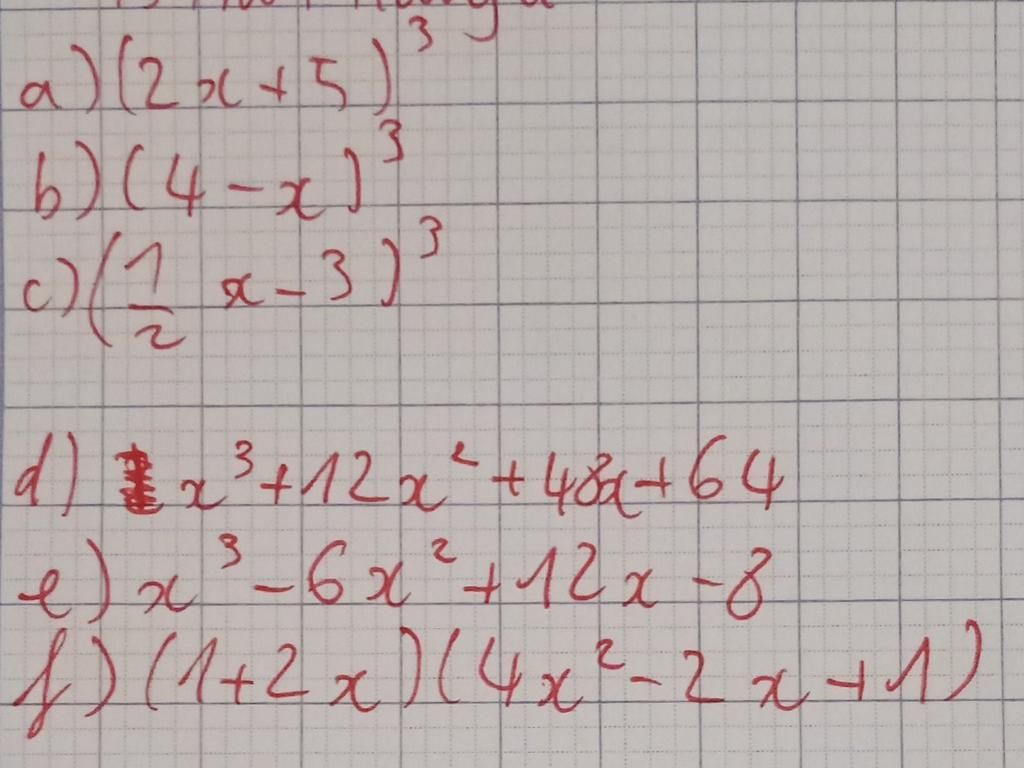 a) (2x+5)³
b) (4-x)³
c) (1/2 x-3)³
d) x³+12x²+48x+64
e) x³-6x²+12x-8
f) (1+2x)(4x²-2x+1)